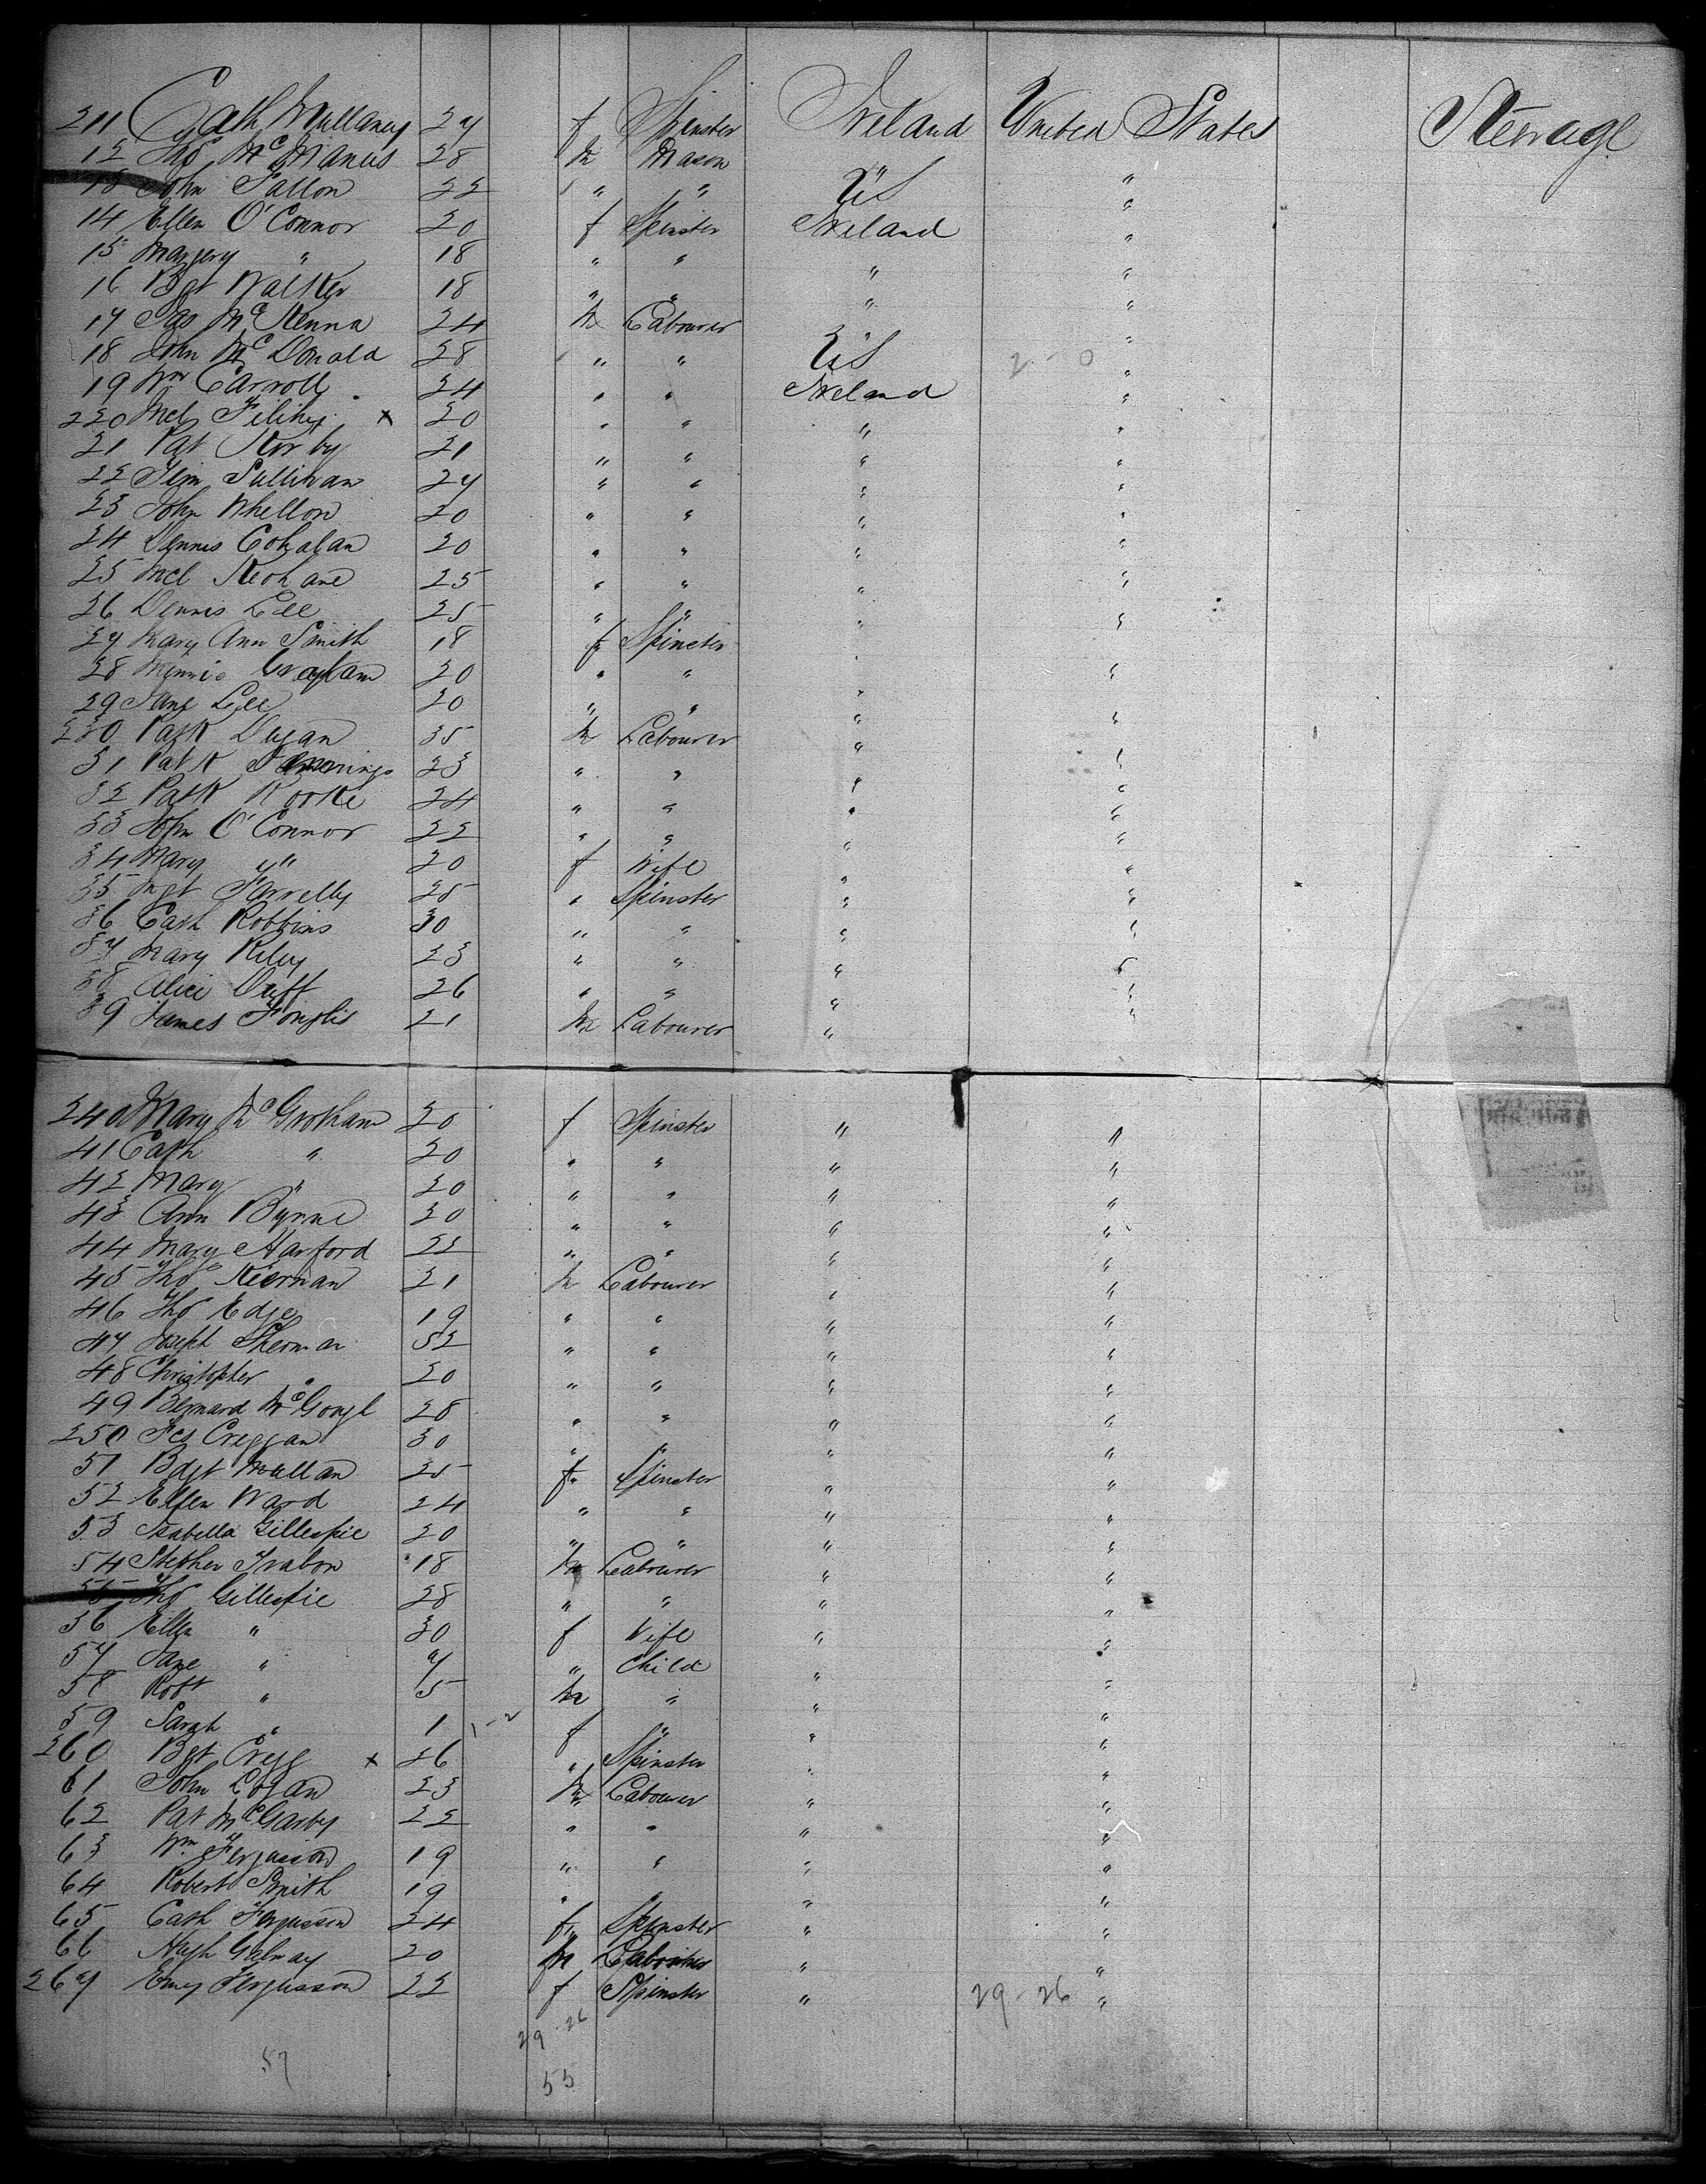 211 Cath Mullaney 27 f Spinster Ireland United States Steerage
12 Thos McManus 28 m Mason " "
13 John Fallon 22 " " US "
14 Ellen O'Connor 20 f Spinster Ireland "
15 Margery " 18 " " " "
16 Bgt Walker 18 " " " "
17 Jas McKenna 24 m Labourer " "
18 John McDonald 28 " " US " 2 - 0
19 Wm Carroll 24 " " Ireland "
220 Mcl x 20 " " " "
21 Pat Kirby 21 " " " "
22 Tim Sullivan 27 " " " "
23 John Whellon 20 " " " "
24 Dennis Cohalan 20 " " " "
25 Mcl Keohane 25 " " " "
26 Dennis Lee 25 " " " "
27 Mary Ann Smith 18 f Spinster " "
28 Minnie Graham 20 " " " "
29 Jane Lee 20 " " " "
230 Patk Dugan 35 m Labourer " "
31 Patk 23 " " " "
32 Patk Rorke 24 " " " "
33 John O'Connor 22 " " " "
34 Mary " 20 f Wife " "
35 Mgt Farrelly 25 " Spinster " "
36 Cath Robbins 30 " " " "
37 Mary Riley 23 " " " "
38 Alice Duff 26 " " " "
39 James 21 m Labourer " "
240 Mary 20 f Spinster " "
41 Cath " 20 " " " "
42 Mary " 20 " " " "
43 Ann Byrne 20 " " " "
44 Mary Harford 22 " " " "
45 Thos Kiernan 21 m Labourer " "
46 Thos Edge 19 " " " "
47 Joseph Sherman 52 " " " "
48 Christopher " 20 " " " "
49 Bernard McGough 28 " " " "
250 Creggan 30 " " " "
51 Bdgt Mullan 25 f Spinster " "
52 Ellen Ward 24 " " " "
53 Isabella Gillespie 20 " " " "
54 Stephen 18 m Labourer " "
55 Thos Gillespie 28 " " " "
56 Ellen " 30 f Wife " "
57 Jane " 7 " Child " "
58 Robt " 5 m " " "
59 Sarah " 1 f " " "
260 Bgt Cregg x 26 " Spinster " "
61 John Logan 23 m Labourer " "
62 Pat 22 " " " "
63 Wm Fergusson 19 " " " "
64 Robert Smith 19 " " " "
65 Cath Fergusson 24 f Spinster " "
66 Hugh Galway 20 m Labourer " "
267 Fergusson 22 f Spinster " 29 - 26 "
29 - 26
57 55